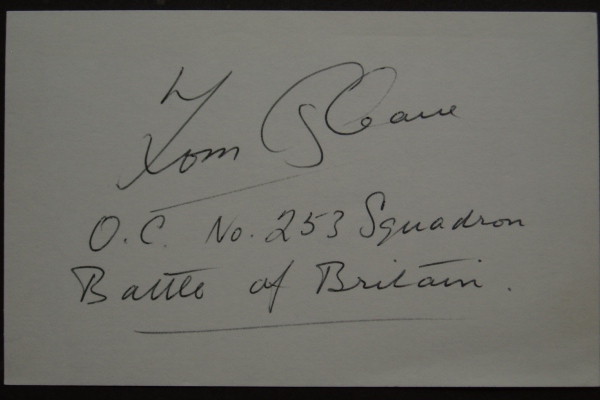 Tom Gleave
O.C. No. 253 Squadron
Battle of Britain.